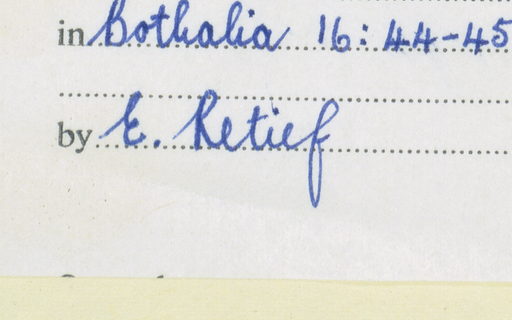 in Bothalia 16: 44-45
by E. Retief